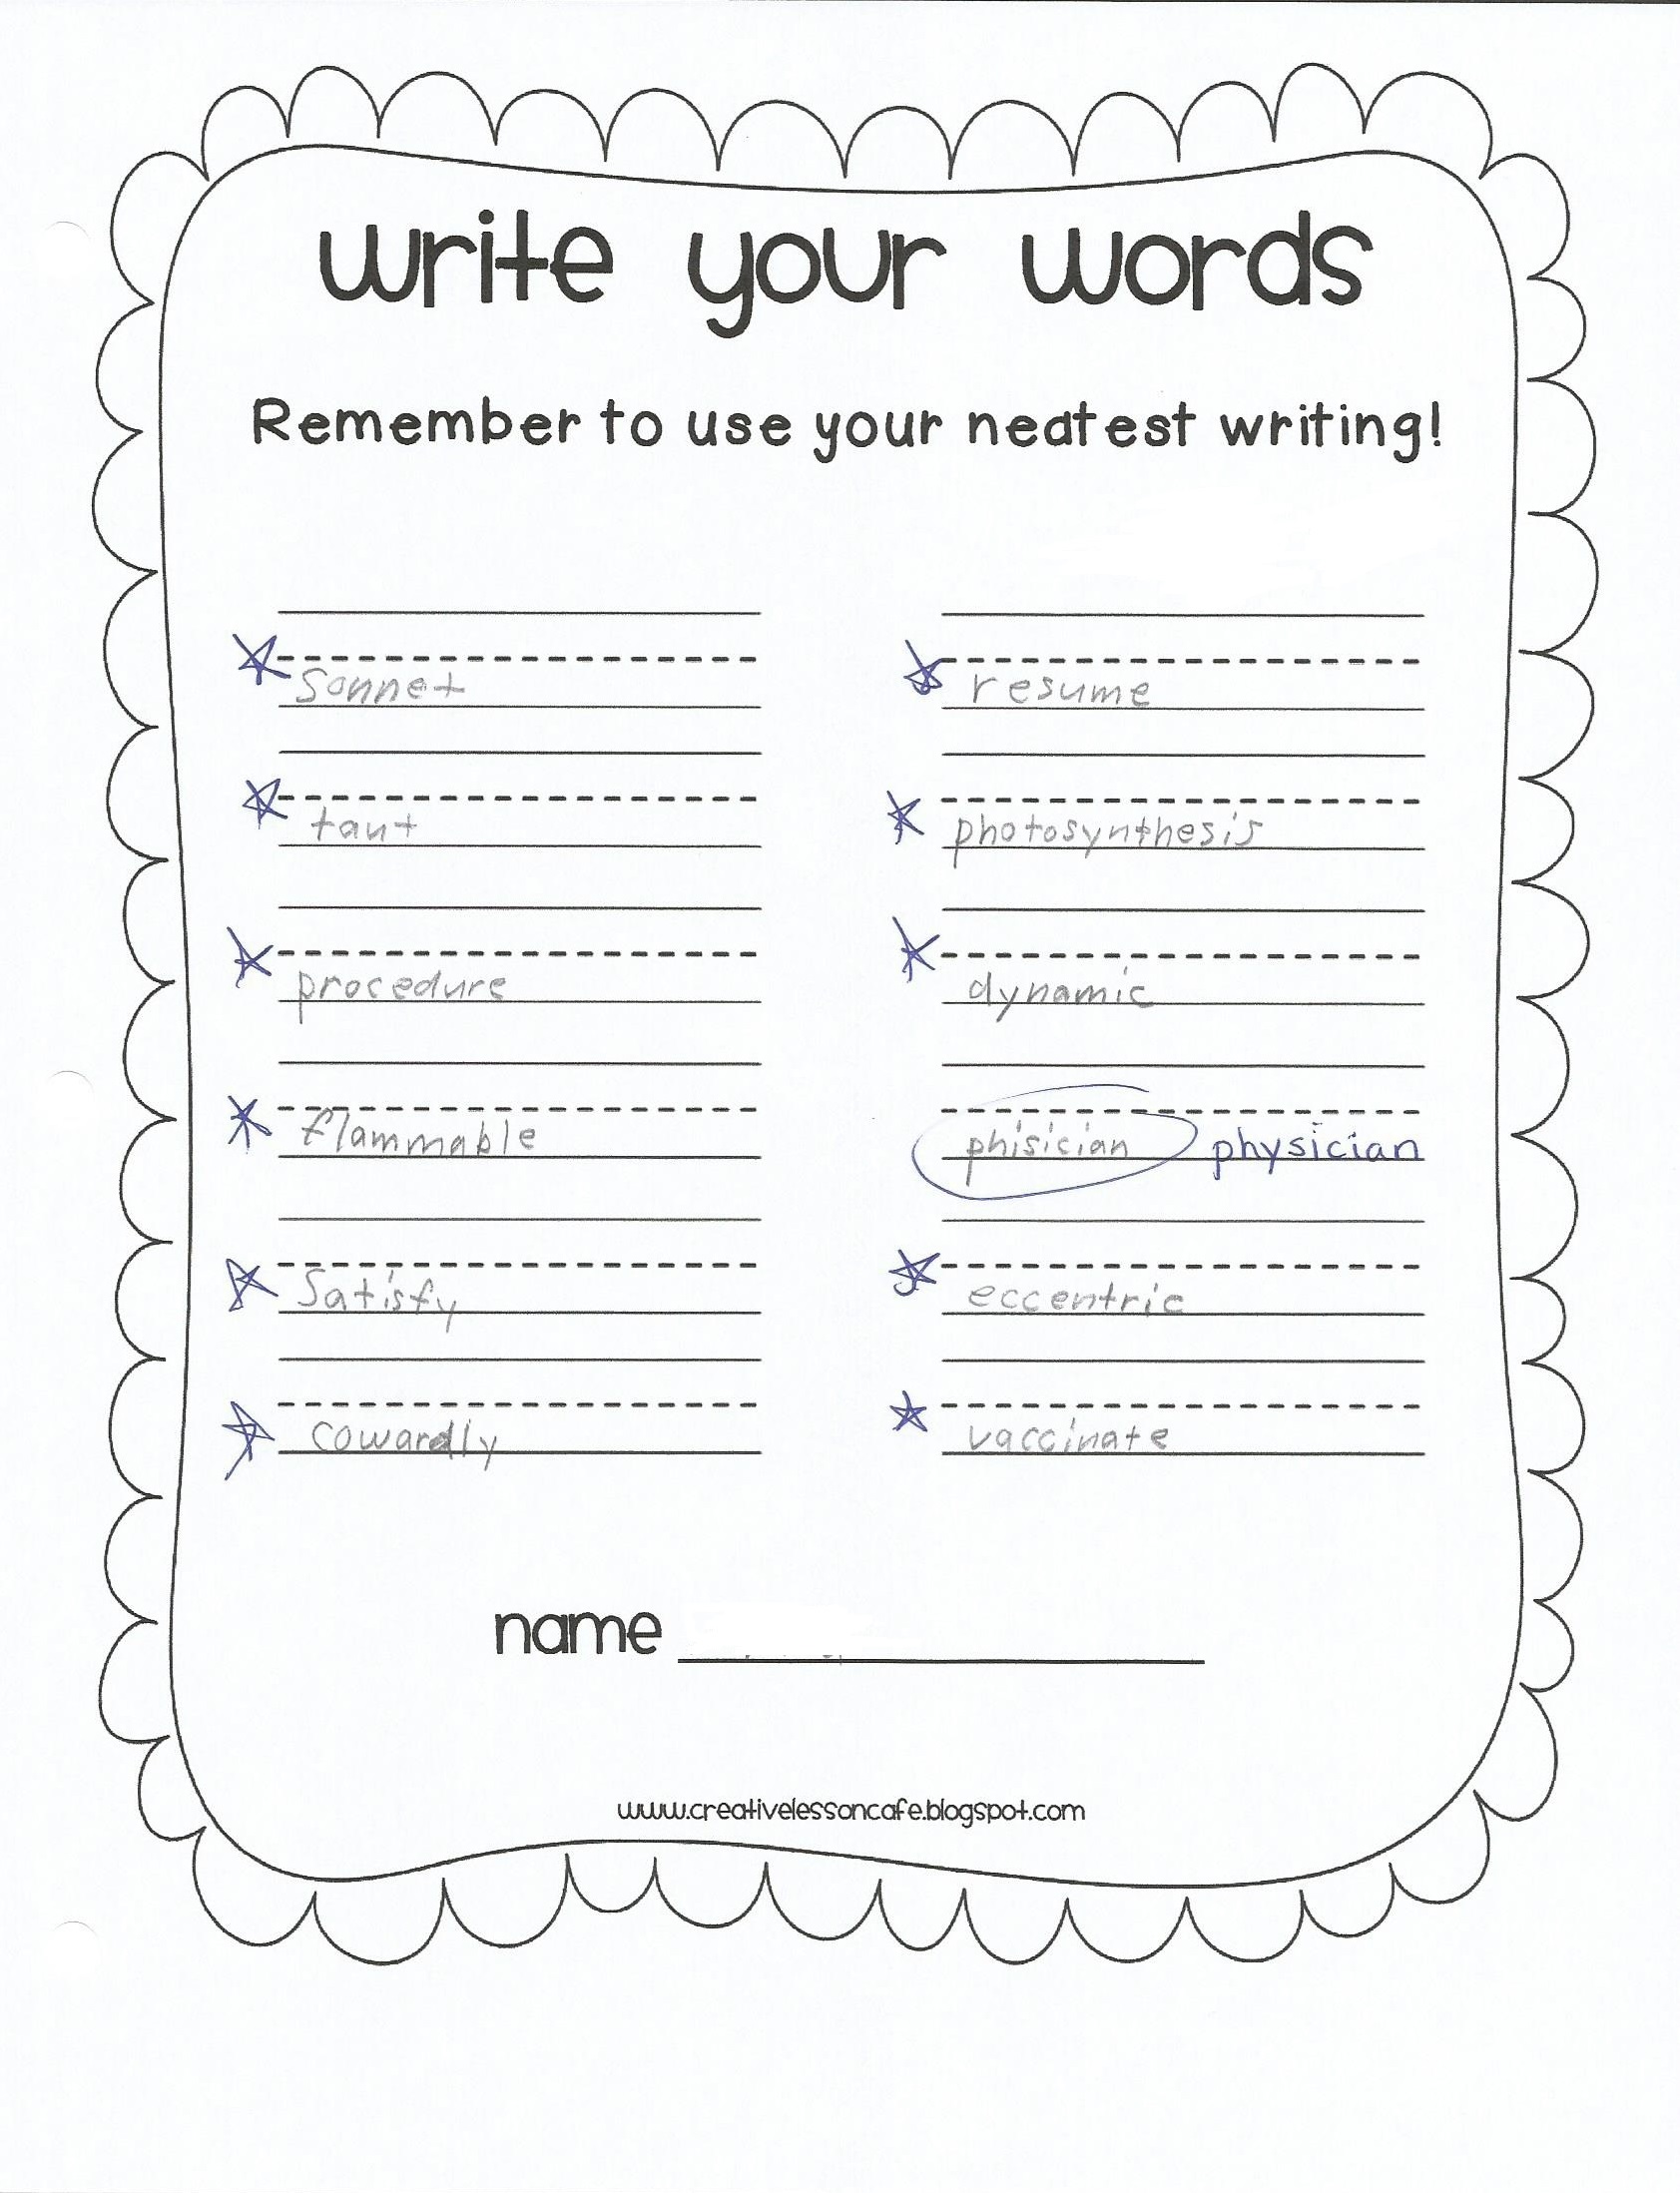 write your words
Remember to use your neatest writing!
Sonnet
taut
procedure
flammable
Satisfy
cowardly
resume
photosynthesis
dynamic
phisician physician
eccentric
vaccinate
name
www.creativelessoncafe.blogspot.com